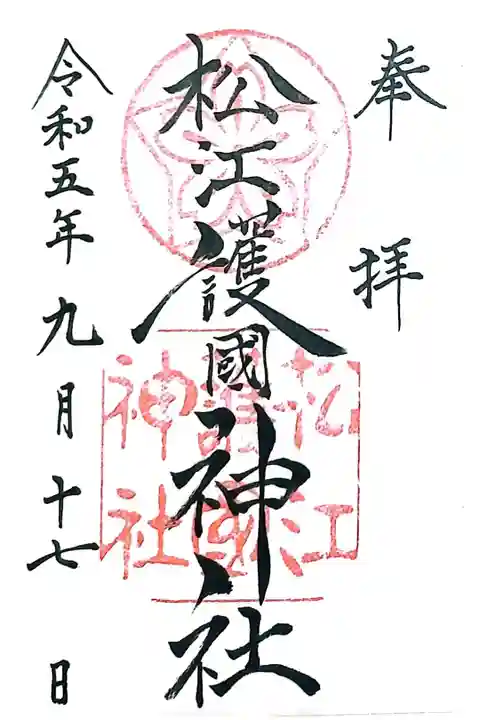 奉拝
松江護國神社
松江
護國
神社
令和五年九月十七日